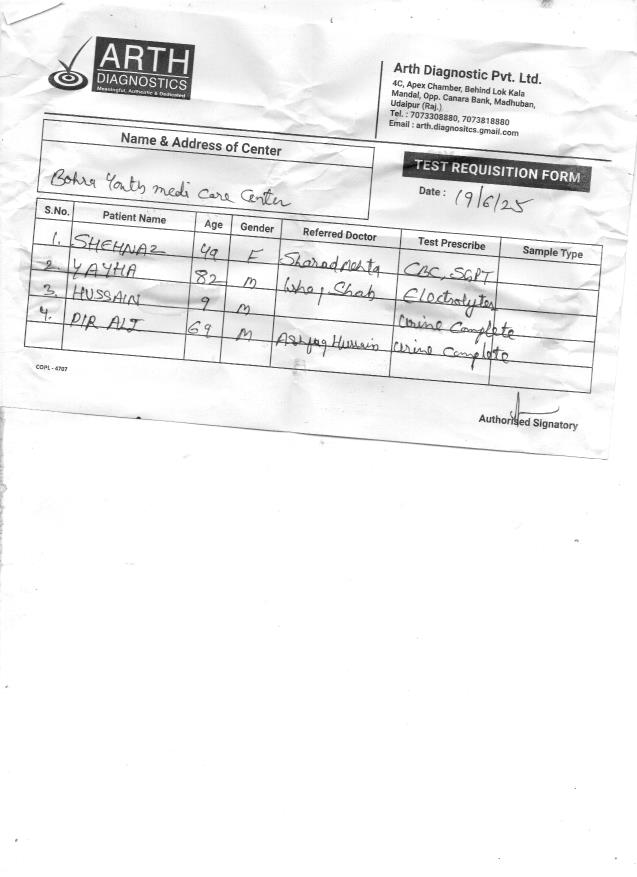 ARTH
DIAGNOSTICS
Meaningful, Authentic & Dedicated
Arth Diagnostic Pvt. Ltd.
4C, Apex Chamber, Behind Lok Kala
Mandal, Opp. Canara Bank, Madhuban,
Udaipur (Raj.)
Tel. : 7073308880, 7073818880
Email : arth.diagnositcs.gmail.com
Name & Address of Center
Bohra Youth medi Care Center
TEST REQUISITION FORM
Date : 19/6/25
S.No. Patient Name Age Gender Referred Doctor Test Prescribe Sample Type
1. SHEHNAZ 49 F Sharad Mehta CBC, SGPT
2. YAYHA 82 M Shah Electrolytes
3. HUSSAIN 9 M Urine Complete
4. PIR ALI 69 M Ashfaq Hussain Urine Complete
COPL - 4707
Authorised Signatory